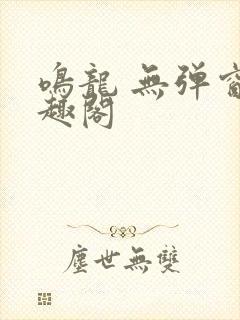 鳴龍 無弹窗
趣閣
塵世無雙